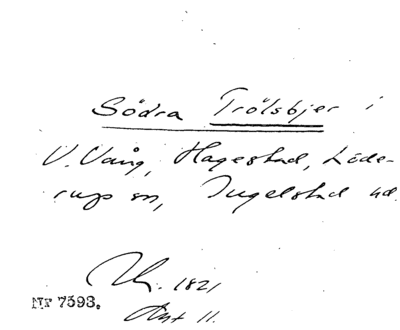 Södra Trölsbjer i
V. Vång, Hagestad, Löde-
rups sn, Ingelstad hd.
1821
Nr 7393.
Akt 11.